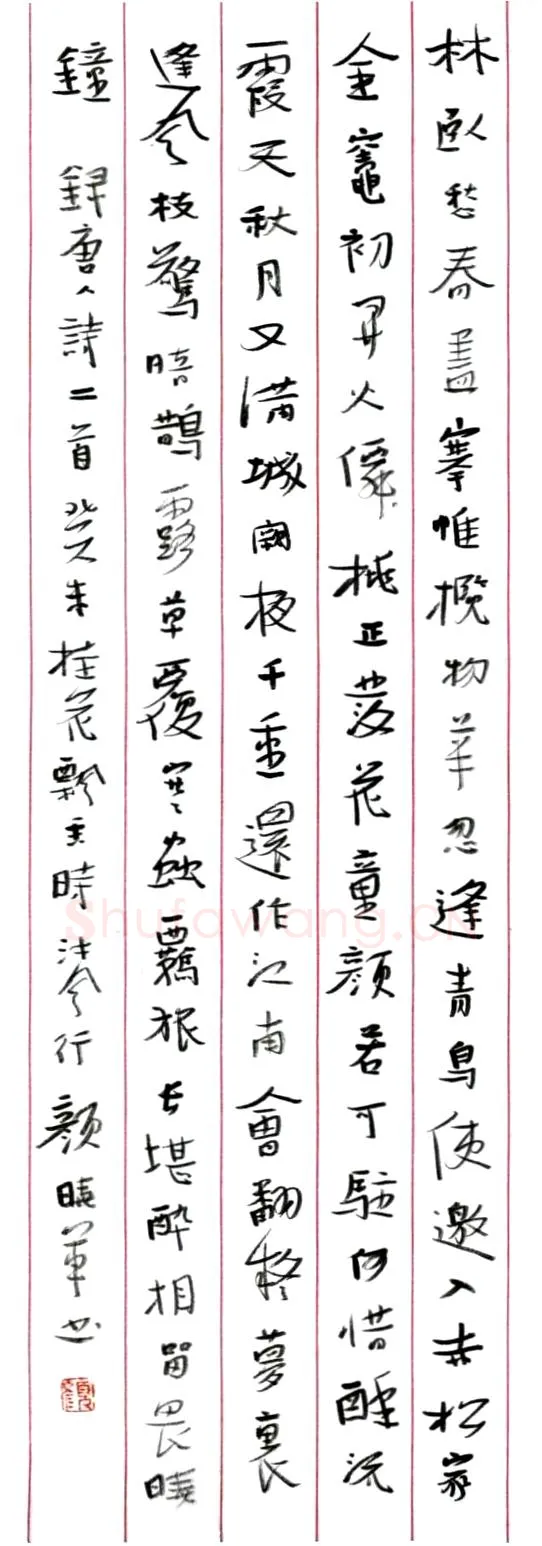 林臥愁春盡搴帷攬物華忽逢青鳥使邀入赤松家
金竈初開火僊桃正落花童顏若可駐何惜醉流
霞天秋月又滿城闕夜千重還作江南會翻疑夢裏
逢風枝驚暗鵲露草覆寒蟲羈旅長堪醉相留畏曉
鐘 錄唐人詩二首癸未桂花飄香時 行顏曉軍书
Shufawang.CN